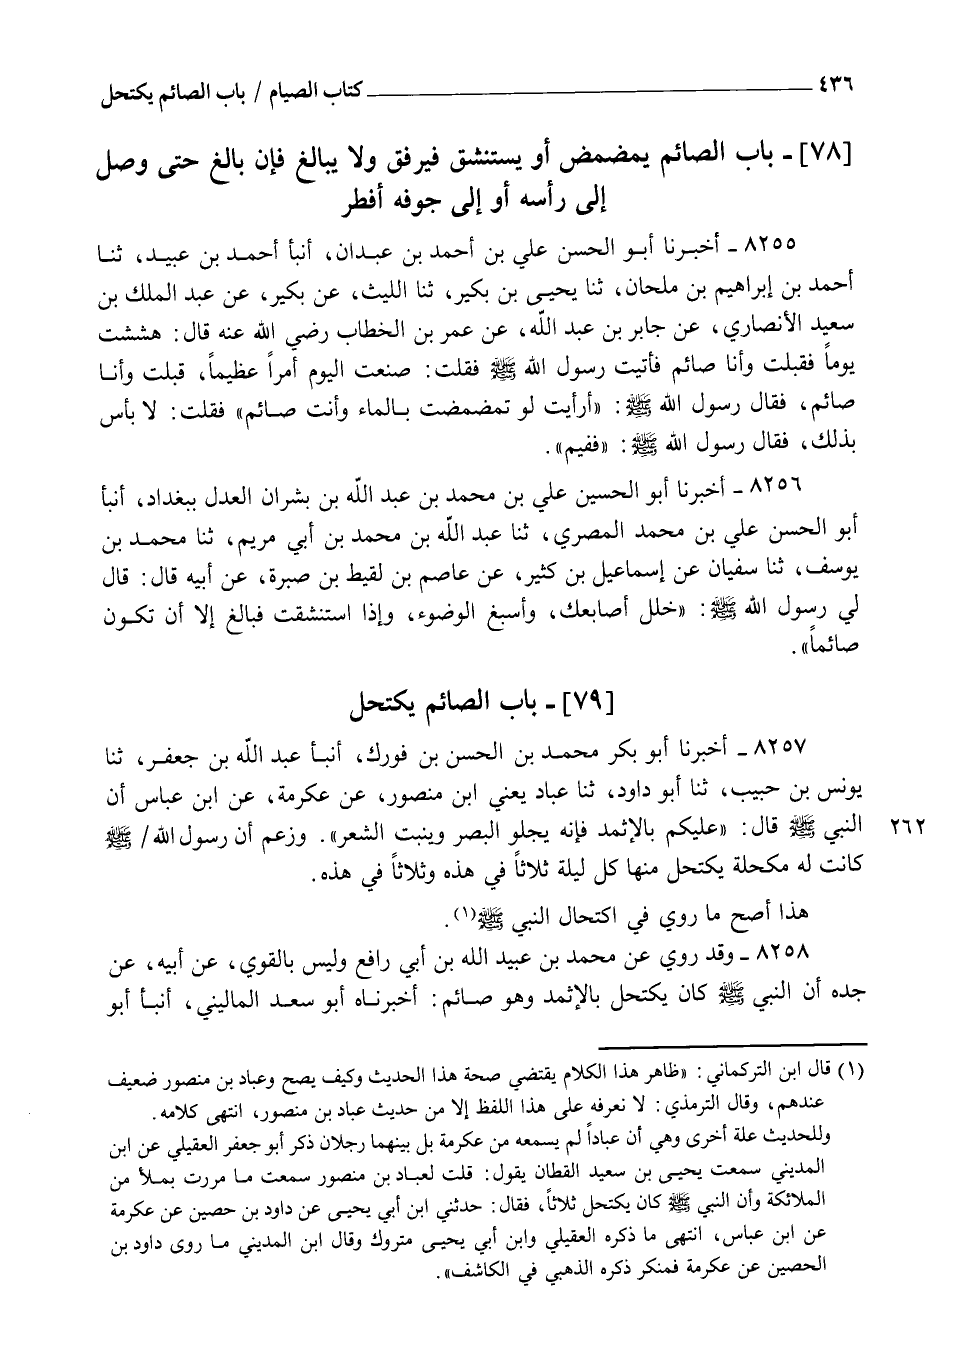 ٤٣٦ كتاب الصيام / باب الصائم يكتحل
[٧٨] ـ باب الصائم يمضمض أو يستنشق فيرفق ولا يبالغ فإن بالغ حتى وصل
إلى رأسه أو إلى جوفه أفطر
٨٢٥٥ ـ أخبرنا أبو الحسن علي بن أحمد بن عبدان، أنبأ أحمد بن عبيد، ثنا
أحمد بن إبراهيم بن ملحان، ثنا يحيى بن بكير، ثنا الليث، عن بكير، عن عبد الملك بن
سعيد الأنصاري، عن جابر بن عبد اللّه، عن عمر بن الخطاب رضي الله عنه قال: هششت
يوماً فقبلت وأنا صائم فأتيت رسول الله ﷺ فقلت: صنعت اليوم أمراً عظيماً، قبلت وأنا
صائم، فقال رسول الله ﷺ: «أرأيت لو تمضمضت بالماء وأنت صائم» فقلت: لا بأس
بذلك، فقال رسول الله ﷺ: «ففيم».
٨٢٥٦ ـ أخبرنا أبو الحسين علي بن محمد بن عبد اللّه بن بشران العدل ببغداد، أنبأ
أبو الحسن علي بن محمد المصري، ثنا عبد اللّه بن محمد بن أبي مريم، ثنا محمد بن
يوسف، ثنا سفيان عن إسماعيل بن كثير، عن عاصم بن لقيط بن صبرة، عن أبيه قال: قال
لي رسول الله ﷺ: «خلل أصابعك، وأسبغ الوضوء، وإذا استنشقت فبالغ إلا أن تكون
صائماً».
[٧٩] ـ باب الصائم يكتحل
٨٢٥٧ ـ أخبرنا أبو بكر محمد بن الحسن بن فورك، أنبأ عبد اللّه بن جعفر، ثنا
يونس بن حبيب، ثنا أبو داود، ثنا عباد يعني ابن منصور، عن عكرمة، عن ابن عباس أن
٢٦٢ النبي ﷺ قال: «عليكم بالإثمد فإنه يجلو البصر وينبت الشعر». وزعم أن رسول الله/ ﷺ
كانت له مكحلة يكتحل منها كل ليلة ثلاثاً في هذه وثلاثاً في هذه.
هذا أصح ما روي في اكتحال النبي ﷺ(١).
٨٢٥٨ ـ وقد روي عن محمد بن عبيد الله بن أبي رافع وليس بالقوي، عن أبيه، عن
جده أن النبي ﷺ كان يكتحل بالإثمد وهو صائم: أخبرناه أبو سعد الماليني، أنبأ أبو
(١) قال ابن التركماني: «ظاهر هذا الكلام يقتضي صحة هذا الحديث وكيف يصح وعباد بن منصور ضعيف
عندهم، وقال الترمذي: لا نعرفه على هذا اللفظ إلا من حديث عباد بن منصور، انتهى كلامه.
وللحديث علة أخرى وهي أن عباداً لم يسمعه من عكرمة بل بينهما رجلان ذكر أبو جعفر العقيلي عن ابن
المديني سمعت يحيى بن سعيد القطان يقول: قلت لعباد بن منصور سمعت ما مررت بملأ من
الملائكة وأن النبي ﷺ كان يكتحل ثلاثاً، فقال: حدثني ابن أبي يحيى عن داود بن حصين عن عكرمة
عن ابن عباس، انتهى ما ذكره العقيلي وابن أبي يحيى متروك وقال ابن المديني ما روى داود بن
الحصين عن عكرمة فمنكر ذكره الذهبي في الكاشف».